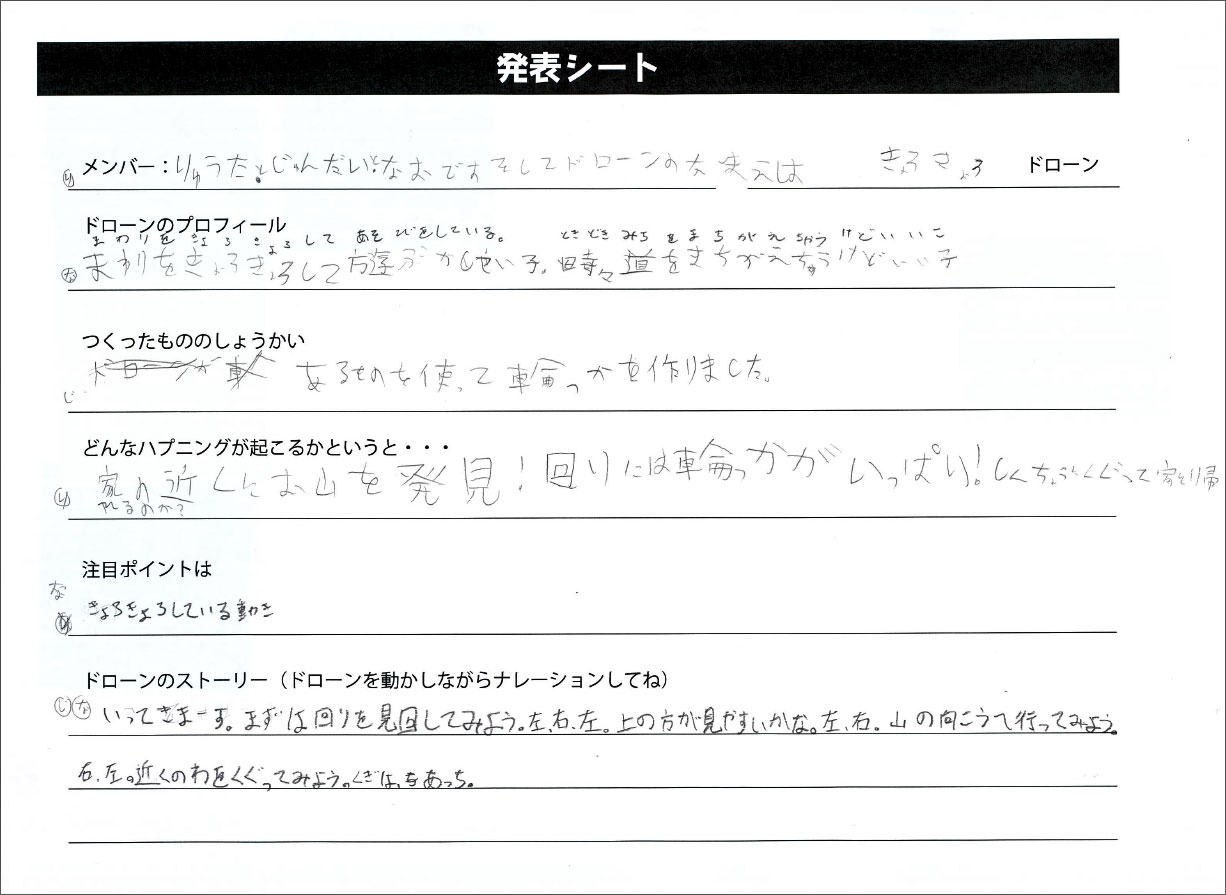 発表シート
メンバー：りゅうたとじゅんだいとなおです そしてドローンの名まえは きょろきょろ ドローン
ドローンのプロフィール
まわりをきょろきょろして あそびをしている。 ときどきみちをまちがえちゃうけどいいこ
まわりをきょろきょろして 子。時々道をまちがえちゃうけどいい子
つくったもののしょうかい
じ あるものを使って車輪っかを作りました。
どんなハプニングが起こるかというと・・・
り 家の近くにお山を発見！回りには車輪っかがいっぱい！しんちょうにくぐって家に帰
れるのか？
注目ポイントは
な
きょろきょろしている動き
ドローンのストーリー（ドローンを動かしながらナレーションしてね）
じ な いってきまーす。まずは回りを見回してみよう。左、右、左。上の方が見やすいかな。左、右。山の向こうへ行ってみよう。
右、左。近くのわをくぐってみよう。つぎは、あっち。